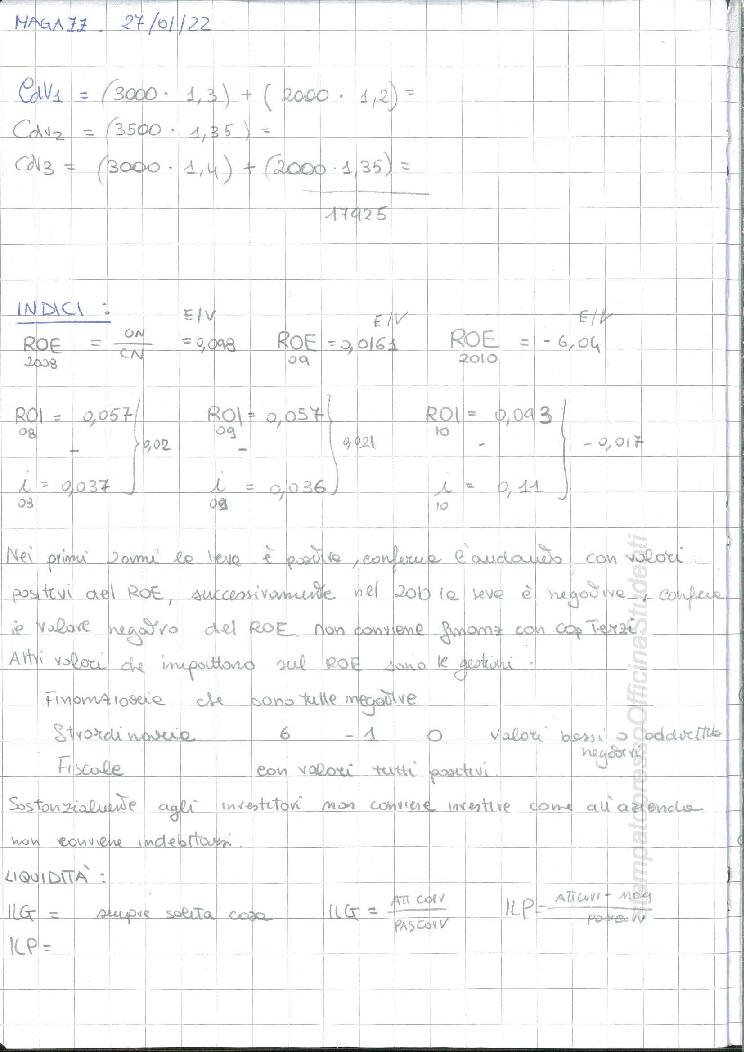 MAGAZZ. 27/01/22
CdV1 = (3000 · 1,3) + (2000 · 1,2) =
CdV2 = (3500 · 1,35) =
CdV3 = (3000 · 1,4) + (2000 · 1,35) =
17925
INDICI :
E/V E/V E/V
ROE 2008 = ON/CN = 0,098 ROE 09 = 0,0161 ROE 2010 = - 6,04
ROI 08 = 0,057 ROI 09 = 0,057 ROI 10 = 0,093
- 0,02 - 0,021 - - 0,017
i 08 = 0,037 i 09 = 0,036 i 10 = 0,11
Nei primi 2 anni la leva è positiva, conferma l'andamento con valori
positivi del ROE, successivamente nel 2010 la leva è negativa, conferma
il valore negativo del ROE. non conviene finanz con cap Terzi
Altri valori che impattano sul ROE sono le gestioni.
FINANZIARIA che sono tutte negative
Straordinaria 6 -1 0 valori bassi o addirittura
negativi
Fiscale con valori tutti positivi.
Sostanzialmente agli investitori non conviene investire come all'azienda
non conviene indebitarsi.
LIQUIDITÀ :
ILG = sempre solita cosa ILG = ATT CORR/PAS CORR ILP = ATT CORR - MAG/PAS CORR
ILP =
Stampato presso OfficinaStudenti